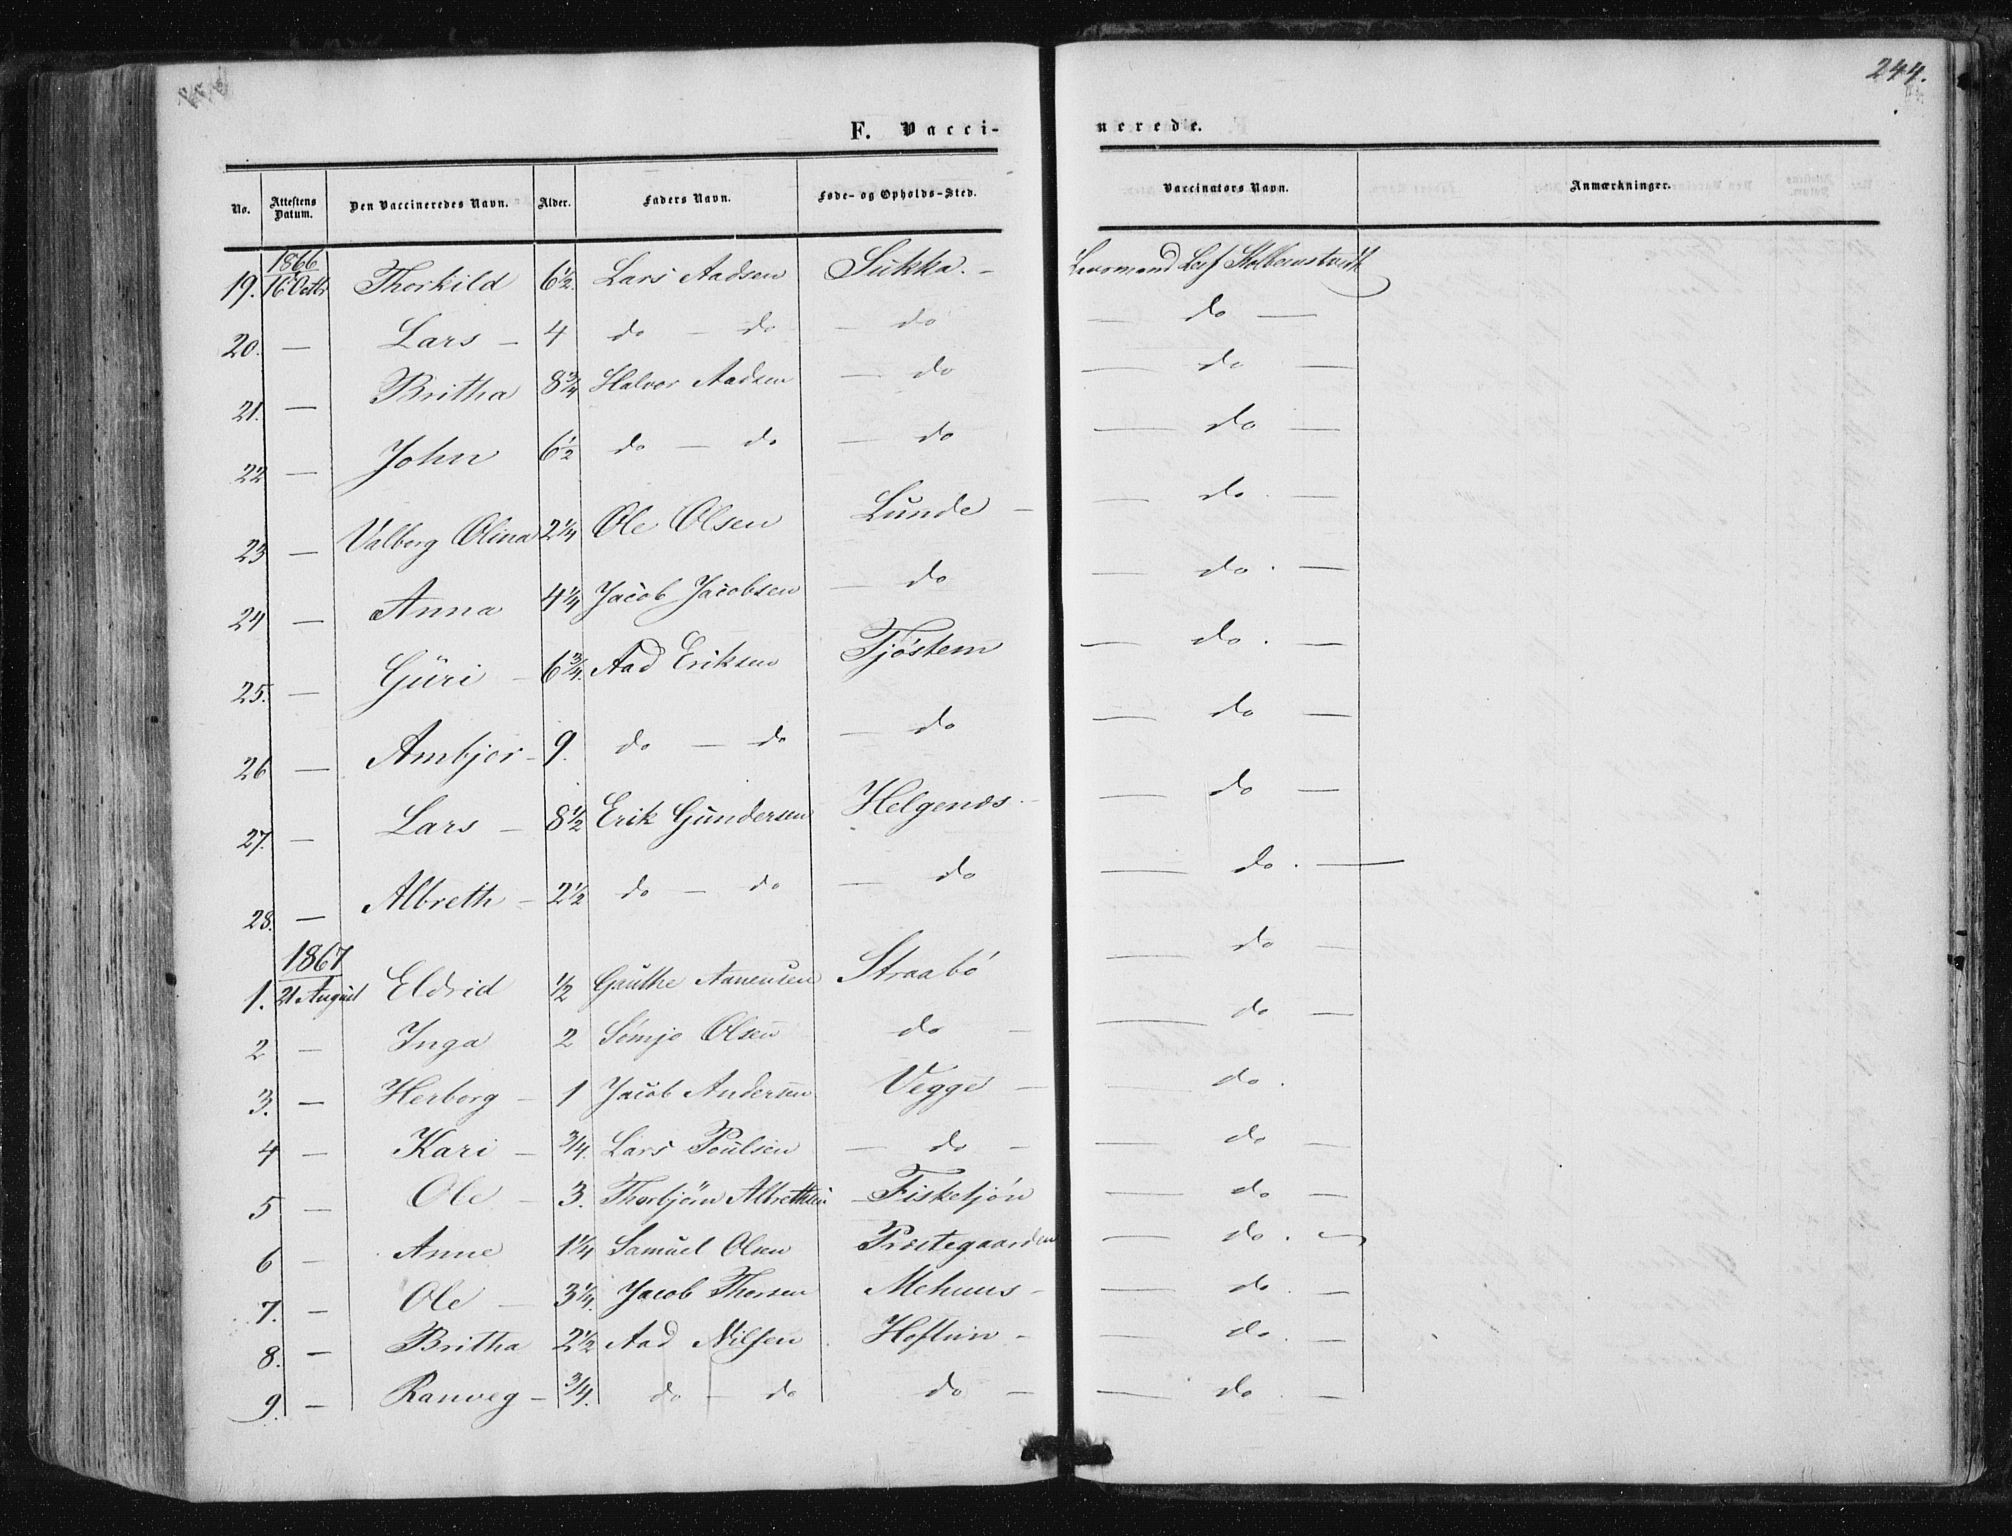 244.
F. Vacci- nerede.
No. Attestens Datum. Den Vaccineredes Navn. Alder. Faders Navn. Føde- og Opholds-Sted. Vaccinators Navn. Anmærkninger.
1866
19. 16 Octbr Thorkild 6½. Lars Aadsen Sukka. -
20. — Lars - 4 do - do - do — do —
21. — Britha 8¾ Halvor Aadsen — do — do —
22 — John 6½ do — do — do — do —
23 — Valborg Olina 2¼ Ole Olsen Lunde - — do. —
24 — Anna 4¼ Jacob Jacobsen — do — do. —
25. — Guri - 6¾. Aad Eriksen Tjöstem — do. —
26 — Ambjer - 9. do — do — do — do —
27. — Lars - 8½ Erik Gundersen Helgenes - — do —
28. — Albreth - 2½ do — do — do — do. —
1867
1. 21 August Eldrid ½ Gauthe Aanensen Straabö — do —
2 — Inga 2 Sömje Olsen do - — do —
3. — Herborg - 1 Jacob Andersen Vegge - — do.
4 — Kari - ¾. Lars Poulsen — do - — do —
5 — Ole - 3. Thorbjörn Albrethsen Fisketjön — do —
6 — Anne 1¼ Samuel Olsen Præstegaarden — do. —
7. — Ole - 3¼. Jacob Thorsen Mehuus - — do. —
8. — Britha 2½ Aad Nilsen Heftun - — do. —
9. — Ranveg - ¾. do - do do - — do. —